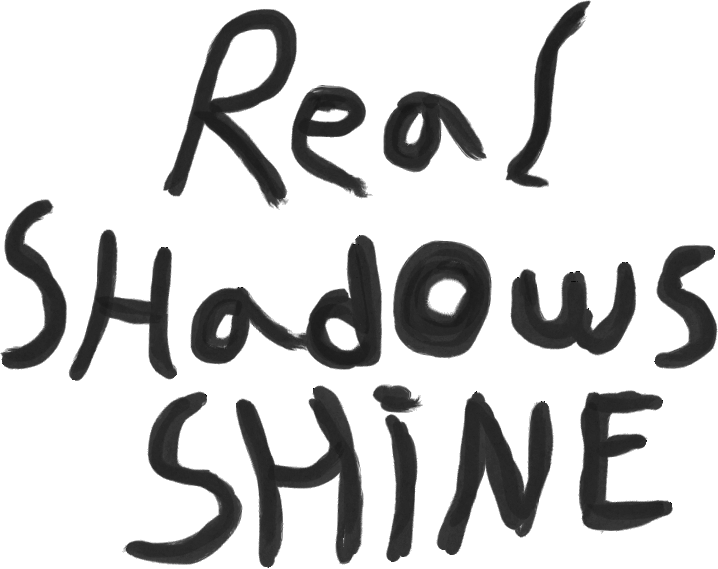 Real
SHadows
SHiNE